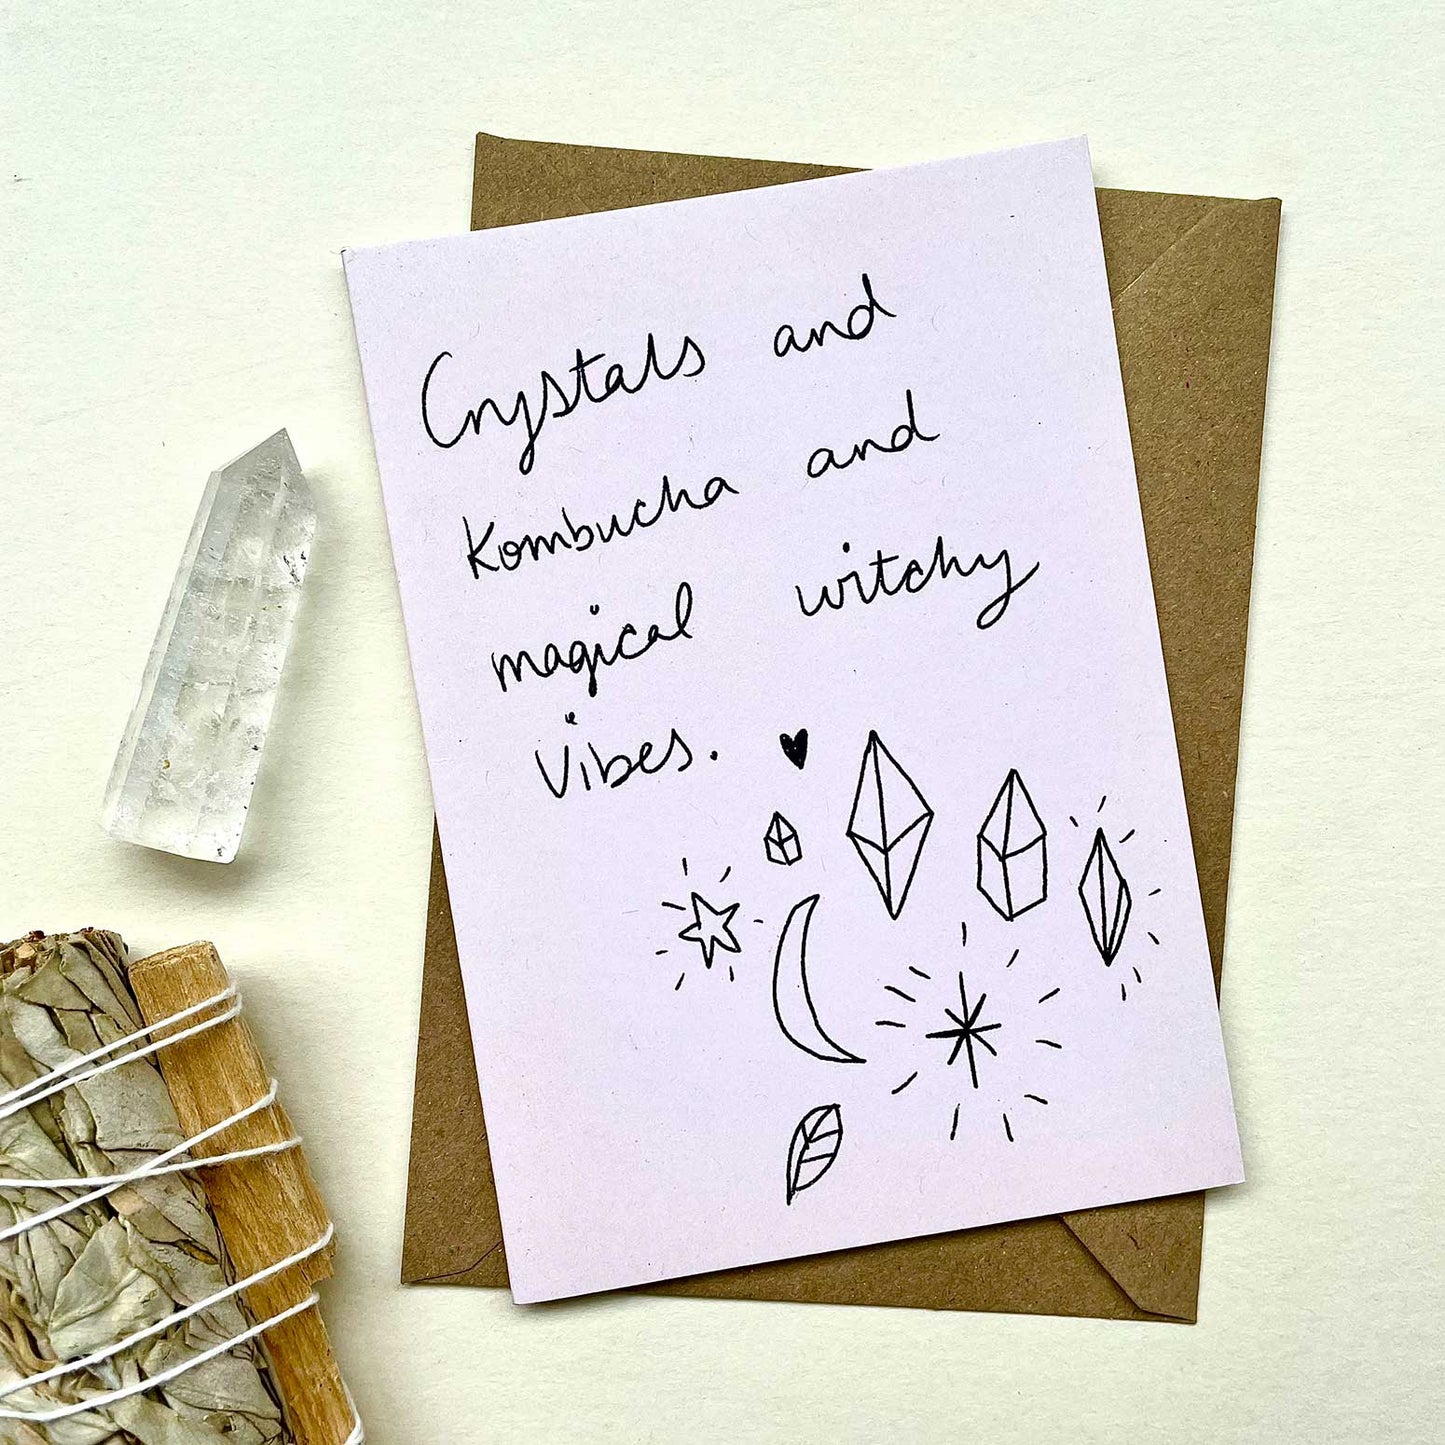 Crystals and
Kombucha and
magical witchy
Vibes.